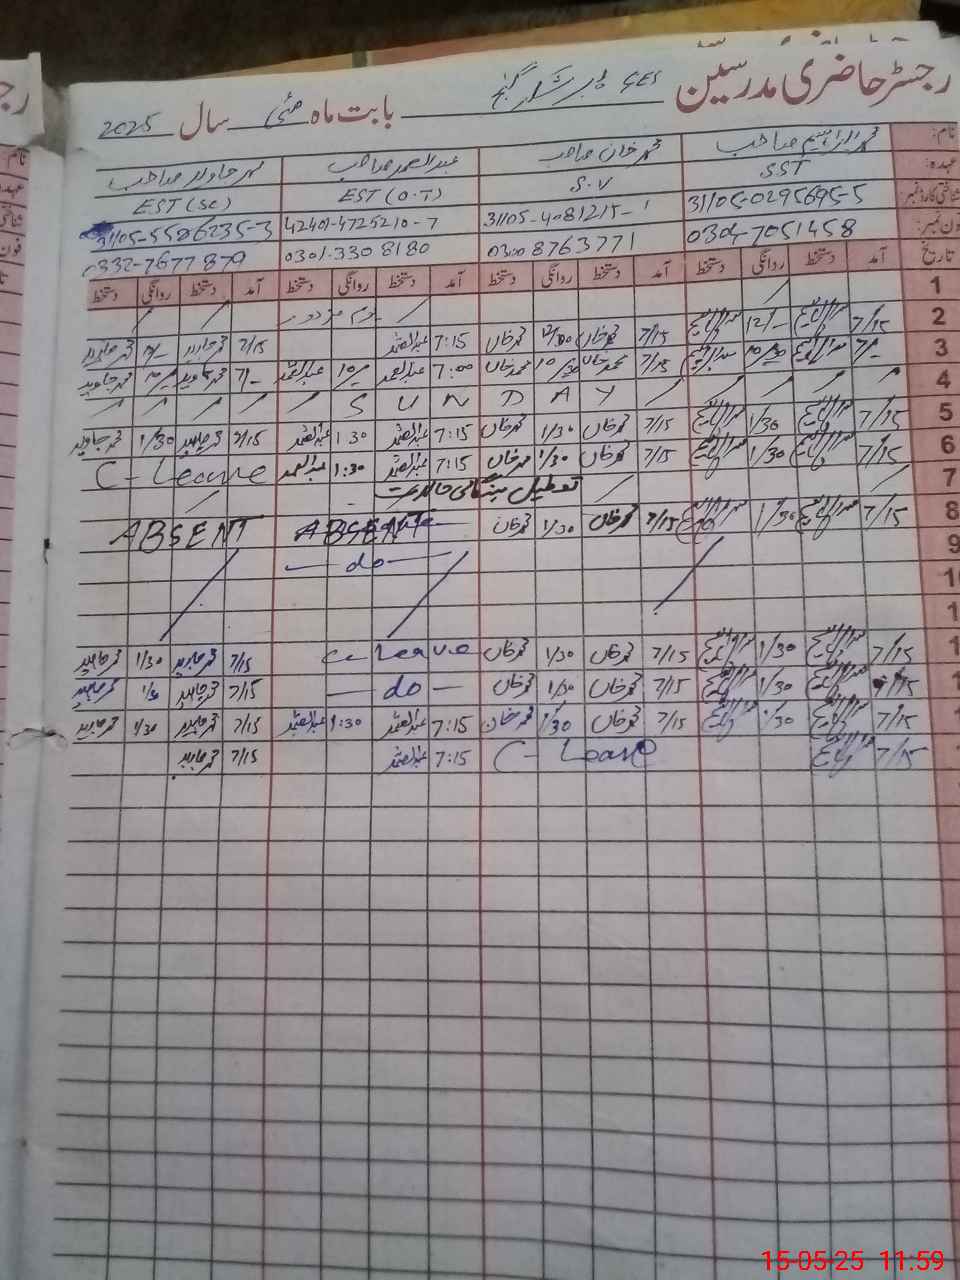 رجسٹر حاضری مدرسین GES بابت ماہ مئی سال 2025
نام: محمد ابراہیم صاحب محمد خان صاحب عبدالصمد صاحب محمد جاوید صاحب
عہدہ: SST S.V EST (O.T) EST (SC)
شناختی کارڈ نمبر: 31105-0295695-5 31105-4081215-1 42401-4725210-7 31105-5586235-3
فون نمبر: 0304-7051458 0300 8763771 0301-330 8180 0332-7677879
تاریخ آمد دستخط روانگی دستخط آمد دستخط روانگی دستخط آمد دستخط روانگی دستخط آمد دستخط روانگی دستخط
1 یوم مزدور
2 7/15 12/- 7/15 محمد خان 12/00 محمد خان 7:15 عبدالصمد 7/15 محمد جاوید محمد جاوید
3 7/- 10/30 7/15 محمد خان 10/30 محمد خان 7:00 عبدالصمد 10/- عبدالصمد 7/- محمد جاوید 10/- محمد جاوید
4 S U N D A Y
5 7/15 1/30 7/15 محمد خان 1/30 محمد خان 7:15 عبدالصمد 1 30 عبدالصمد 7/15 محمد جاوید 1/30 محمد جاوید
6 7/15 1/30 7/15 محمد خان 1/30 محمد خان 7:15 عبدالصمد 1:30 عبدالصمد C-Leave
7 تعطیل ہنگامی حالت
8 7/15 1/30 7/15 محمد خان 1/30 محمد خان ABSENT ABSENT
9 — do —
10
1
1 7/15 1/30 7/15 محمد خان 1/30 محمد خان C-Leave 7/15 محمد جاوید 1/30 محمد جاوید
1 7/15 1/30 7/15 محمد خان 1/30 محمد خان — do — 7/15 محمد جاوید 1/30 محمد جاوید
1 7/15 1/30 7/15 محمد خان 1/30 محمد خان 7:15 عبدالصمد 1:30 عبدالصمد 7/15 محمد جاوید 1/30 محمد جاوید
1 7/15 C-Leave 7:15 عبدالصمد 7/15 محمد جاوید
15-05-25 11:59